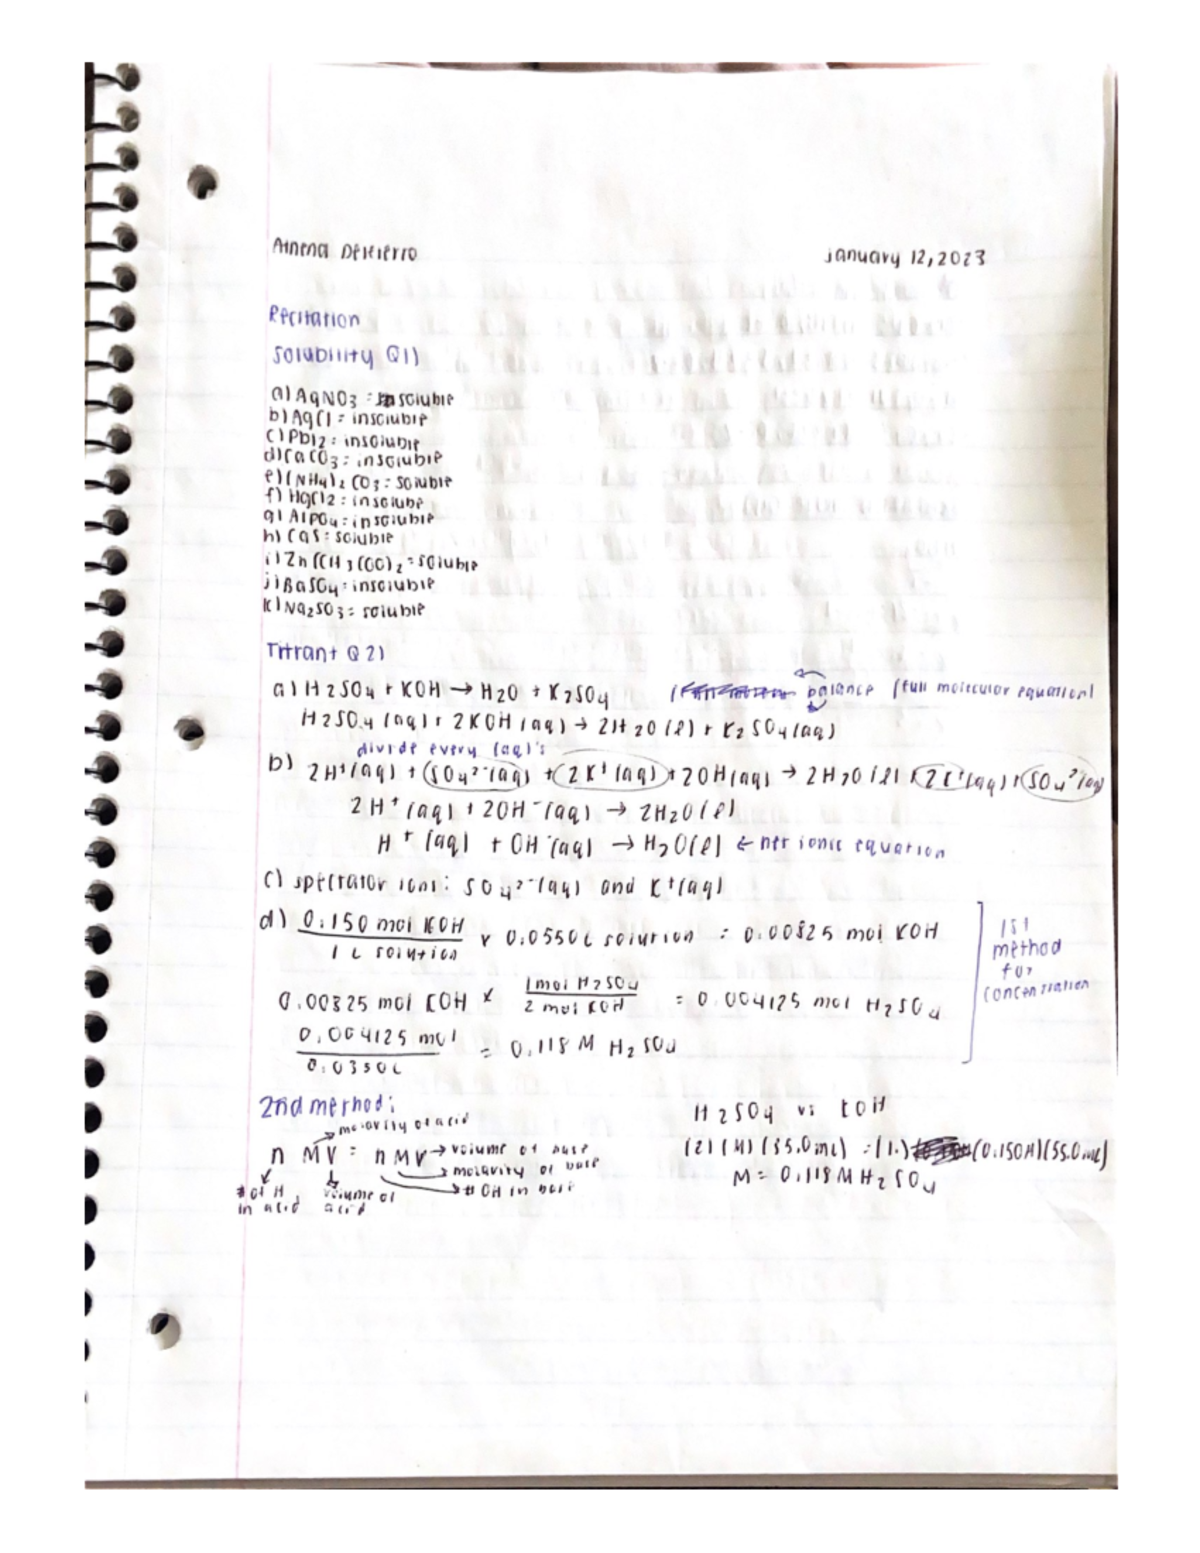 January 12, 2023
Recitation
Solubility Q1)
a) AgNO3 = soluble
b) AgCl = insoluble
c) PbI2 = insoluble
d) CaCO3 = insoluble
e) (NH4)2 CO3 = soluble
f) HgCl2 = insolube
g) AlPO4 = insoluble
h) CaS = soluble
i) Zn(CH3COO)2 = soluble
j) BaSO4 = insoluble
k) Na2SO3 = soluble
Titrant Q2)
a) H2SO4 + KOH → H2O + K2SO4 balance (full molecular equation)
H2SO4 (aq) + 2KOH (aq) → 2H2O (l) + K2SO4 (aq)
divide every (aq)'s
b) 2H+(aq) + SO4²⁻(aq) + 2K+(aq) + 2OH(aq) → 2H2O(l) + 2K+(aq) + SO4²(aq)
2H+(aq) + 2OH⁻(aq) → 2H2O(l)
H+(aq) + OH⁻(aq) → H2O(l) ← net ionic equation
c) spectator ions: SO4²⁻(aq) and K+(aq)
d) 0.150 mol KOH / 1 L solution × 0.0550L solution = 0.00825 mol KOH
0.00825 mol KOH × 1 mol H2SO4 / 2 mol KOH = 0.004125 mol H2SO4
0.004125 mol / 0.0350L = 0.118 M H2SO4
1st
method
for
concentration
2nd method:
molarity of acid
n MV = n MV → volume of base
molarity of base
# OH in base
# of H
in acid
volume of
acid
H2SO4 vs KOH
(2)(M)(35.0mL) = (1)(0.150M)(55.0mL)
M = 0.118 M H2SO4